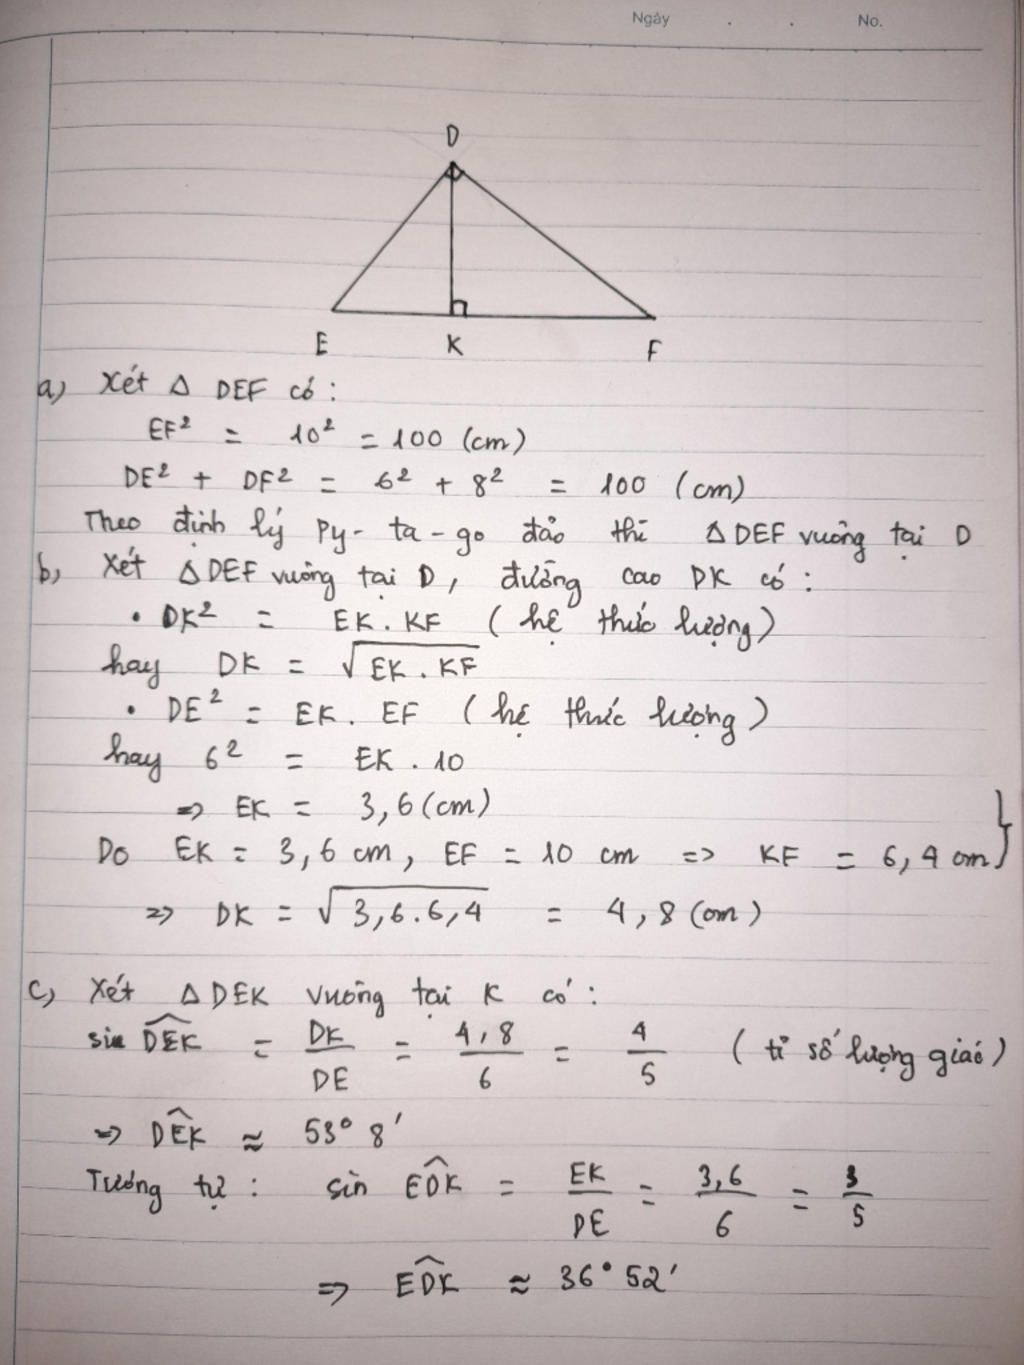 Ngày . . No.
D
E K F
a) Xét Δ DEF có :
EF² = 10² = 100 (cm)
DE² + DF² = 6² + 8² = 100 (cm)
Theo định lý Py-ta-go đảo thì Δ DEF vuông tại D
b) Xét Δ DEF vuông tại D, đường cao DK có :
• DK² = EK . KF ( hệ thức lượng )
hay DK = √EK . KF
• DE² = EK . EF ( hệ thức lượng )
hay 6² = EK . 10
=> EK = 3,6 (cm)
Do EK = 3,6 cm, EF = 10 cm => KF = 6,4 cm }
=> DK = √3,6 . 6,4 = 4,8 (cm)
c) Xét Δ DEK vuông tại K có :
sin D̂EK = DK/DE = 4,8/6 = 4/5 ( tỉ số lượng giác )
=> D̂EK ≈ 53° 8'
Tương tự : sin ÊDK = EK/DE = 3,6/6 = 3/5
=> ÊDK ≈ 36° 52'